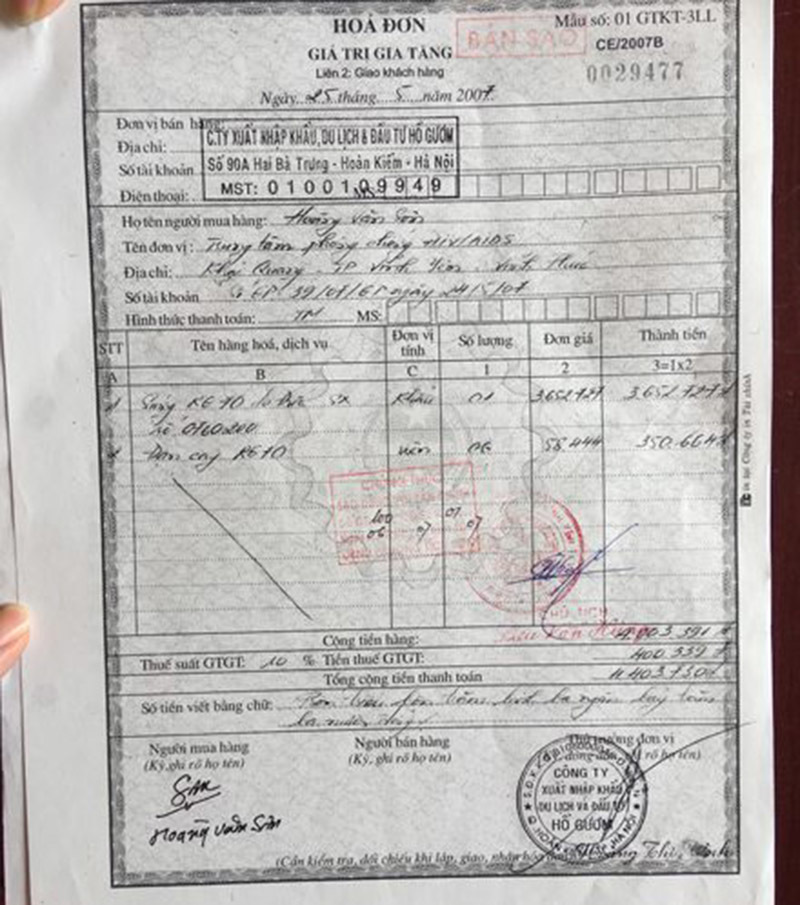 HOÁ ĐƠN
GIÁ TRỊ GIA TĂNG
Liên 2: Giao khách hàng
Mẫu số: 01 GTKT-3LL
BẢN SAO
CE/2007B
0029477
Ngày 25 tháng 5 năm 2007
Đơn vị bán hàng:
C.TY XUẤT NHẬP KHẨU, DU LỊCH & ĐẦU TƯ HỒ GƯƠM
Địa chỉ:
Số 90A Hai Bà Trưng - Hoàn Kiếm - Hà Nội
Số tài khoản
MST: 0100109949
Điện thoại: MS
Họ tên người mua hàng: Hoàng Văn Sơn
Tên đơn vị: Trung tâm phòng chống HIV/AIDS
Địa chỉ: Khai Quang - TP Vĩnh Yên - Vĩnh Phúc
Số tài khoản Số GP: 39/07/GP ngày 24/5/07
Hình thức thanh toán: TM MS:
STT Tên hàng hoá, dịch vụ Đơn vị tính Số lượng Đơn giá Thành tiền
A B C 1 2 3=1x2
1 Súng RG 70 do Đức SX Khẩu 01 3.652.727 3.652.727đ
số 0760200
2 Đạn cay RG70 viên 06 58.444 350.664đ
Cộng tiền hàng: 4.003.391đ
Thuế suất GTGT: 10 % Tiền thuế GTGT: 400.339đ
Tổng cộng tiền thanh toán 4.403.730đ
Số tiền viết bằng chữ: Bốn triệu bốn trăm linh ba ngàn bảy trăm
ba mươi đồng
Người mua hàng Người bán hàng Thủ trưởng đơn vị
(Ký, ghi rõ họ tên) (Ký, ghi rõ họ tên)
CÔNG TY
XUẤT NHẬP KHẨU
DU LỊCH VÀ ĐẦU TƯ
HỒ GƯƠM
Hoàng Văn Sơn
(Cần kiểm tra, đối chiếu khi lập, giao, nhận
In tại Công ty in Tài chính